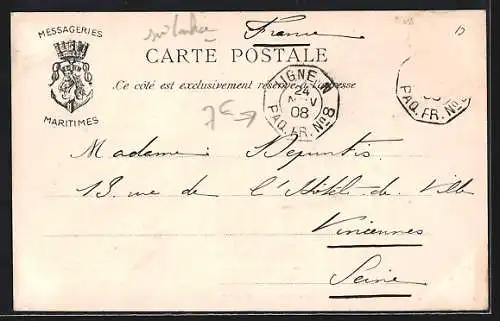 MESSAGERIES
MARITIMES
France
CARTE POSTALE
Ce côté est exclusivement réservé à l'adresse
LIGNE N
24
NOV
08
PAQ. FR. No 8
PAQ. FR. No
7€
Madame Depuntis
13. rue de l'Hôtel de Ville
Vincennes
Seine